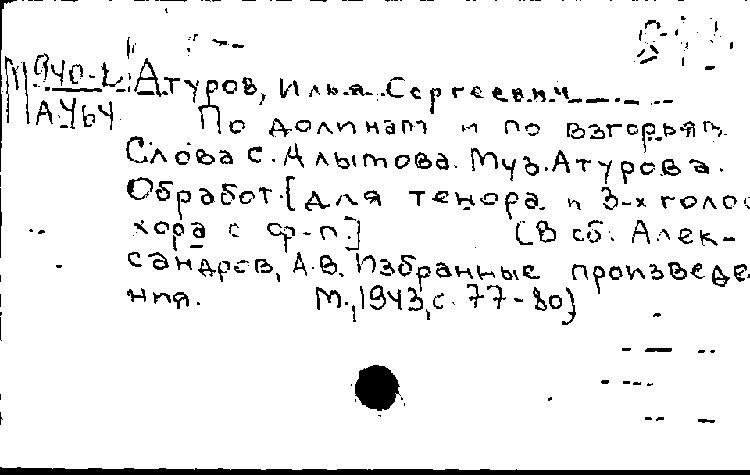 М940-2 Атуров, Илья Сергеевич
А464 По долинам и по взгорьям
Слова С. Алымова. Муз. Атурова.
Обработ. [для тенора и 3-х голос
хора с ф-п.] (В сб. Алек-
сандров, А.В. Избранные произведе
ния. М., 1943, с. 77-80)